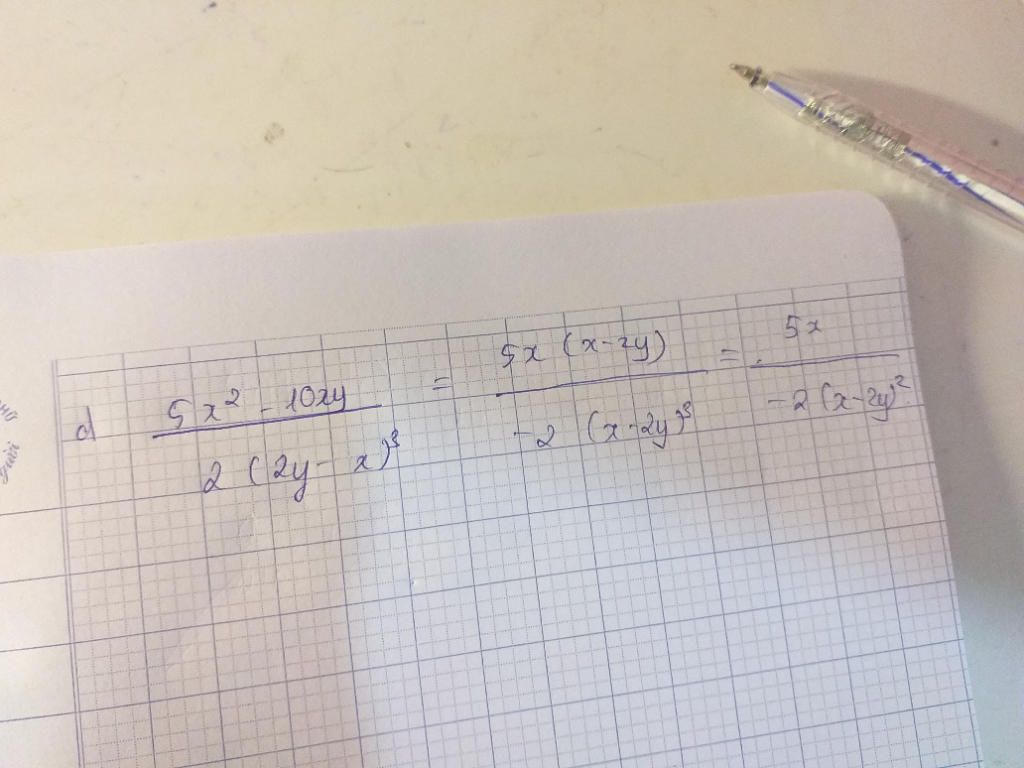 d (5x² - 10xy)/(2(2y - x)³) = (5x(x-2y))/(-2(x-2y)³) = (5x)/(-2(x-2y)²)